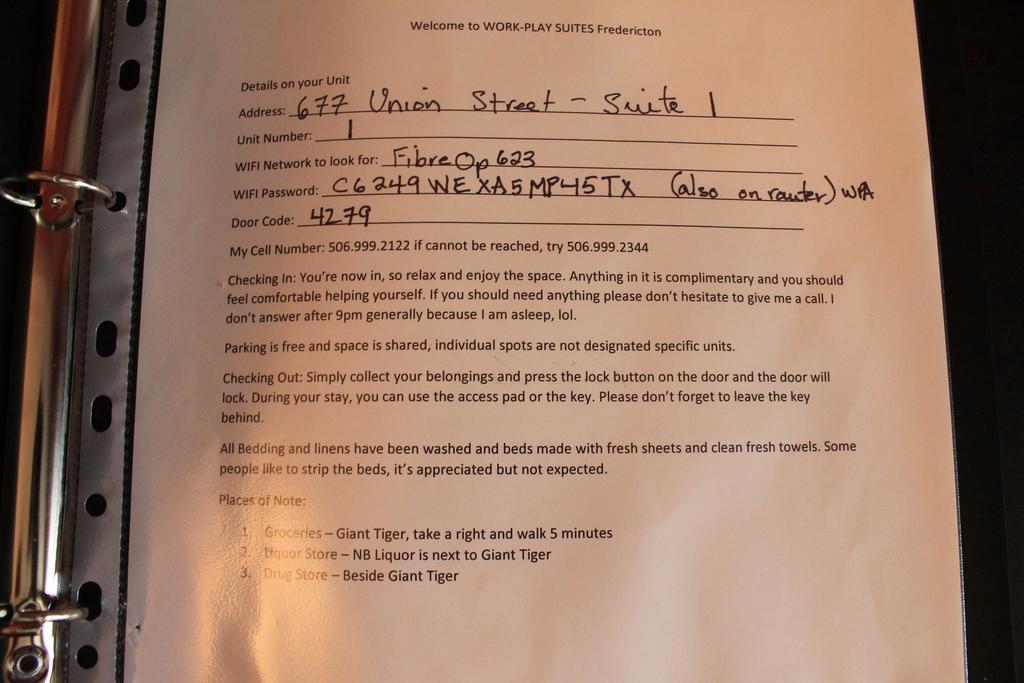 Welcome to WORK-PLAY SUITES Fredericton
Details on your Unit
Address: 677 Union Street - Suite 1
Unit Number: 1
WIFI Network to look for: FibreOp623
WIFI Password: C6249WEXA5MP45TX (also on router) WPA
Door Code: 4279
My Cell Number: 506.999.2122 if cannot be reached, try 506.999.2344
Checking In: You're now in, so relax and enjoy the space. Anything in it is complimentary and you should
feel comfortable helping yourself. If you should need anything please don't hesitate to give me a call. I
don't answer after 9pm generally because I am asleep, lol.
Parking is free and space is shared, individual spots are not designated specific units.
Checking Out: Simply collect your belongings and press the lock button on the door and the door will
lock. During your stay, you can use the access pad or the key. Please don't forget to leave the key
behind.
All Bedding and linens have been washed and beds made with fresh sheets and clean fresh towels. Some
people like to strip the beds, it's appreciated but not expected.
Places of Note:
1. Groceries – Giant Tiger, take a right and walk 5 minutes
2. Liquor Store – NB Liquor is next to Giant Tiger
3. Drug Store – Beside Giant Tiger